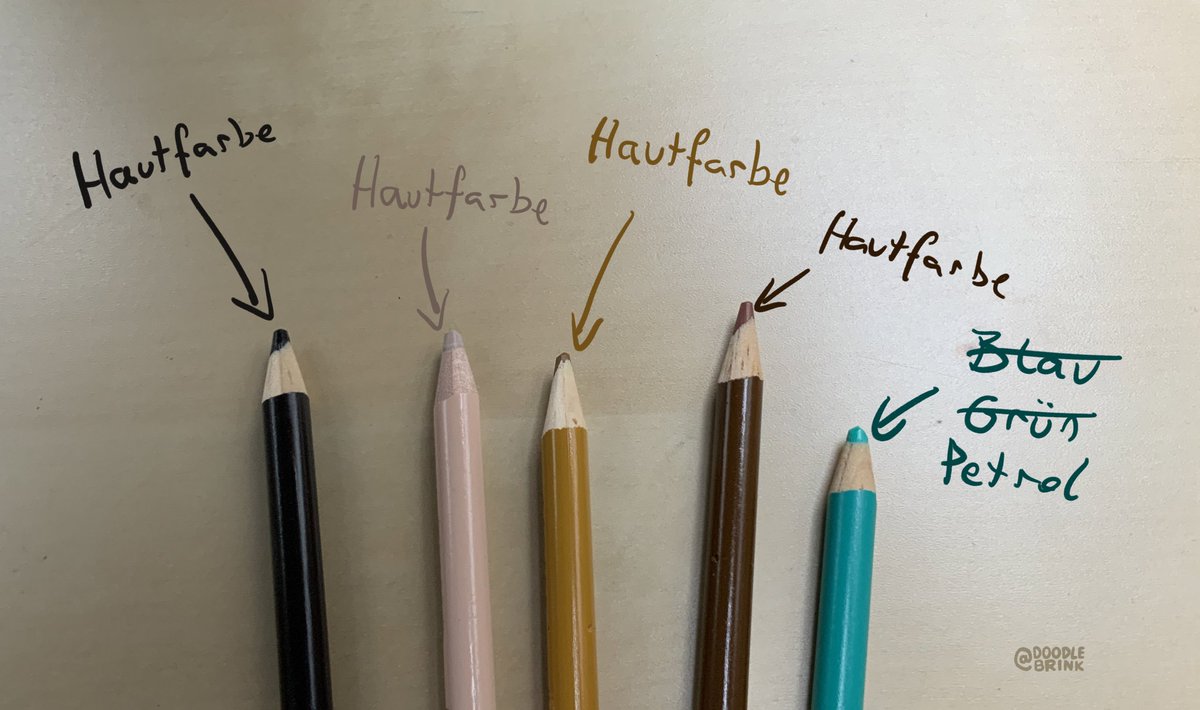 Hautfarbe
Hautfarbe
Hautfarbe
Hautfarbe
Blau
Grün
Petrol
@DOODLE
BRINK